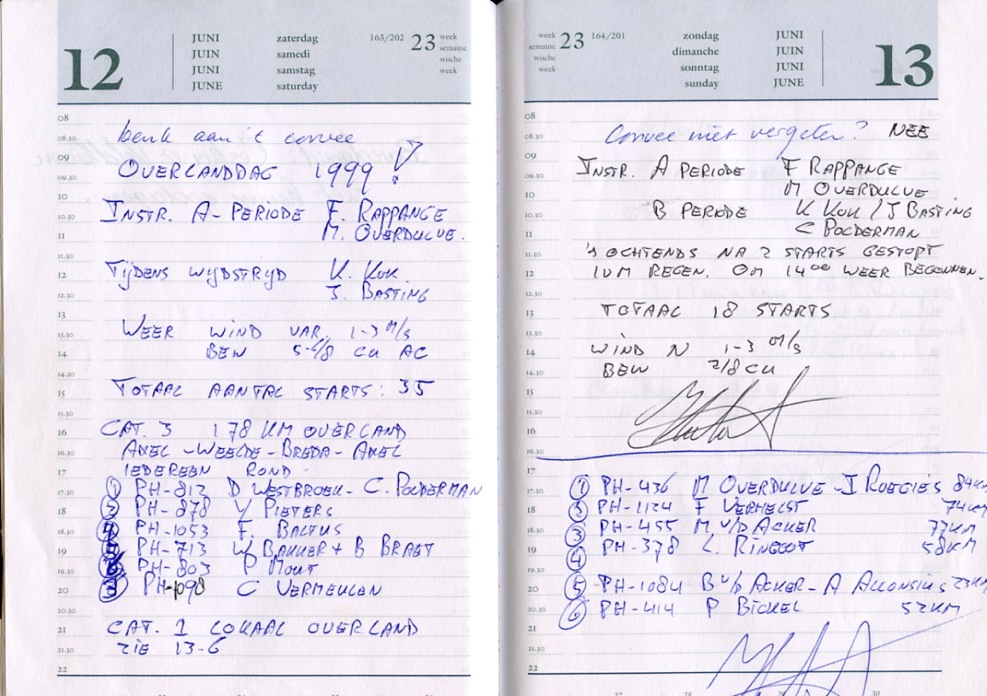 12
JUNI zaterdag 163/202 23 week
JUIN samedi semaine
JUNI samstag woche
JUNE saturday week
08
08.30 denk aan 't corvee
09
09.30 OVERLANDDAG 1999 !
10
10.30 INSTR. A-PERIODE F. RAPPANGE
11 M. OVERDULVE.
11.30
12 TIJDENS WIJDSTRIJD K. KUK
12.30 J. BASTING
13
13.30 WEER WIND VAR. 1-3 M/S
14 BEW 5-6/8 CU AC
14.30
15 TOTAAL AANTAL STARTS: 35
15.30
16 CAT. 3 178 KM OVERLAND
16.30 AXEL-WEELDE-BREDA-AXEL
17 IEDEREEN ROND
17.30 1 PH-812 D WESTBROEK-C. POLDERMAN
18 2 PH-878 Y PIETERS
18.30 PH-1053 F. BALTUS
19 PH-713 W BAKKER + B BRAET
19.30 PH-803 P MOUT
20 PH-1098 C VERMEULEN
20.30
21 CAT. 1 LOKAAL OVERLAND
21.30 ZIE 13-6
22
week 23 164/201 zondag JUNI
semaine dimanche JUIN
woche sonntag JUNI
week sunday JUNE
13
08
08.30 Corvee niet vergeten? NEE
09
09.30 INSTR. A PERIODE F RAPPANGE
10 M OVERDULVE
10.30 B PERIODE K KUK / J BASTING
11 C POLDERMAN
11.30 's OCHTENDS NA 2 STARTS GESTOPT
12 IVM REGEN. OM 14 00 WEER BEGONNEN.
12.30
13 TOTAAL 18 STARTS
13.30
14 WIND N 1-3 M/S
14.30 BEW 2/8 CU
15
15.30
16
16.30
17
17.30 1 PH-436 M OVERDULVE - I ROEGIES 84KM
18 2 PH-1124 F VERHELST 74KM
18.30 3 PH-455 M V/D ACKER 77KM
19 4 PH-378 L. RINGOOT 58KM
19.30
20 5 PH-1084 B V/D ACKER-A ALLONSIUS 23KM
20.30 6 PH-414 P BICKEL 52KM
21
21.30
22